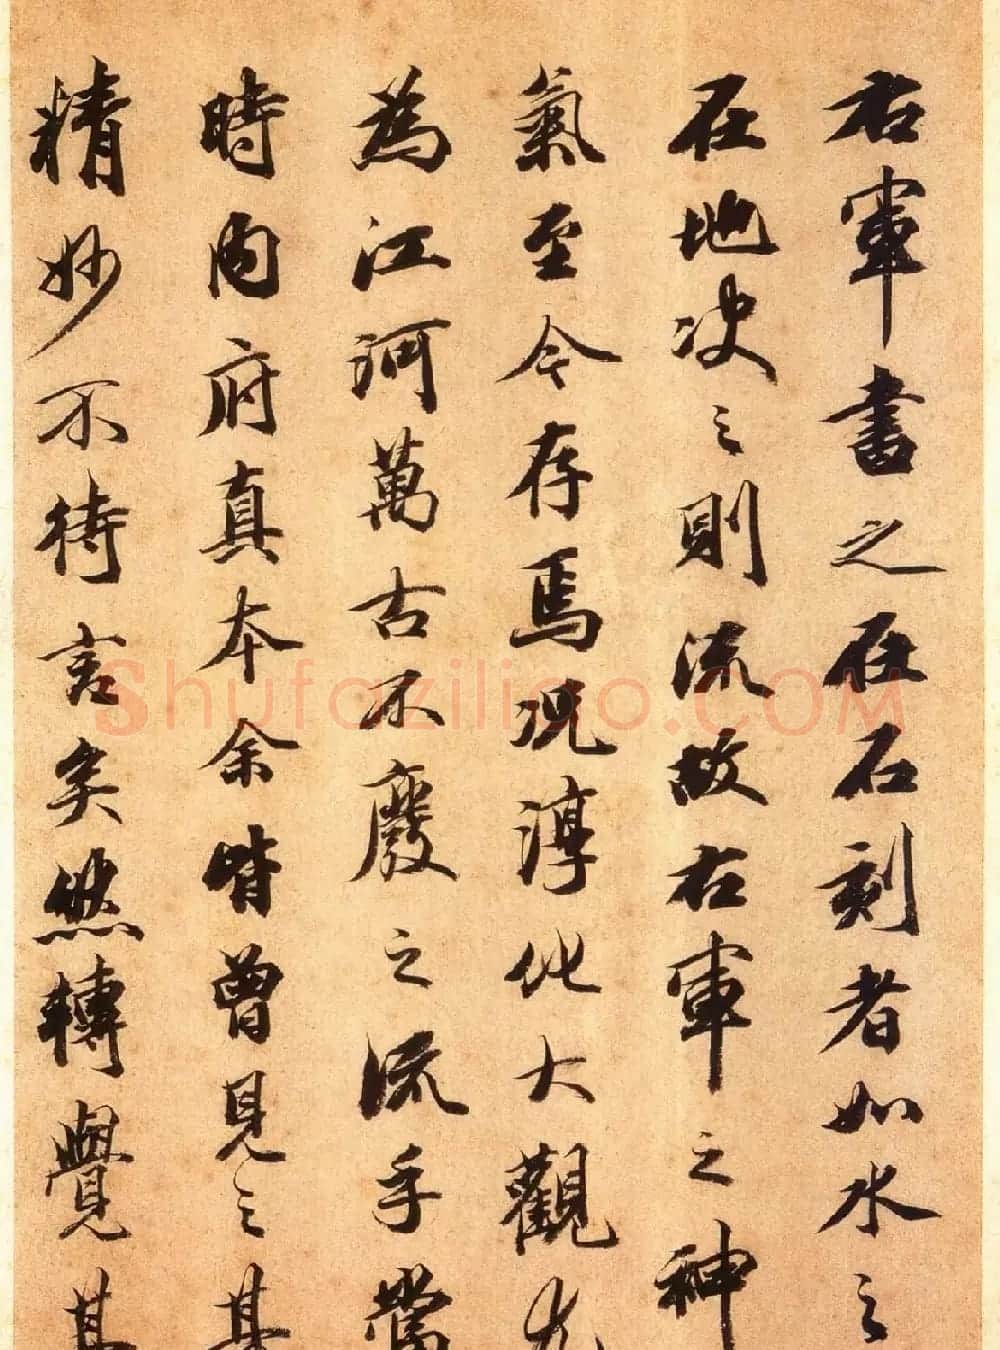 右軍書之在石刻者如水之
在地决之則流故右軍之神
氣至今存焉况淳化大觀尤
為江河萬古不廢之流乎當
時内府真本余皆曾見之其
精妙不待言矣然轉覺其
Shufaziliao.COM